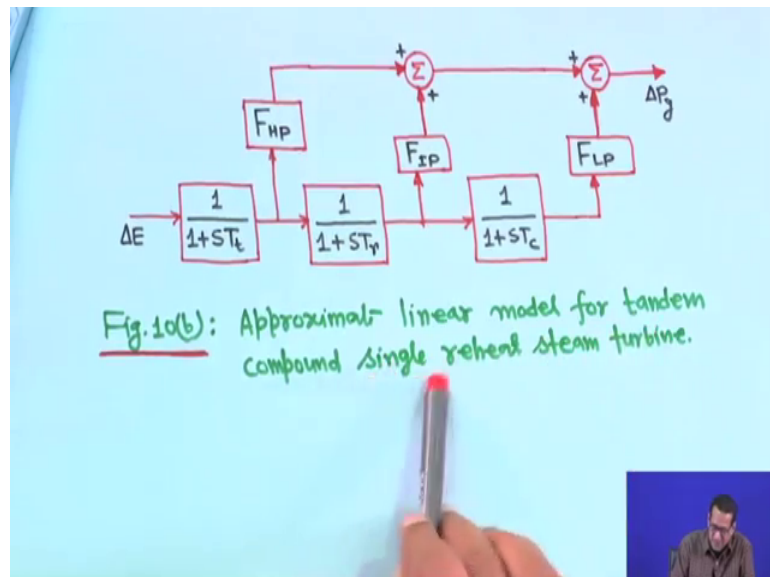 + Σ + Σ
+ + ΔPg
FHP
FIP FLP
ΔE 1/1+STt 1/1+STr 1/1+STc
Fig. 10(b): Approximat- linear model for tandem
compound single reheat steam turbine.